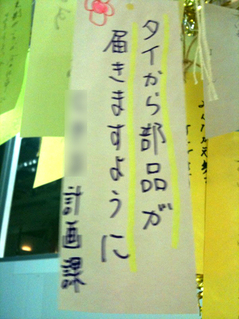 タイから部品が
届きますように
計画課